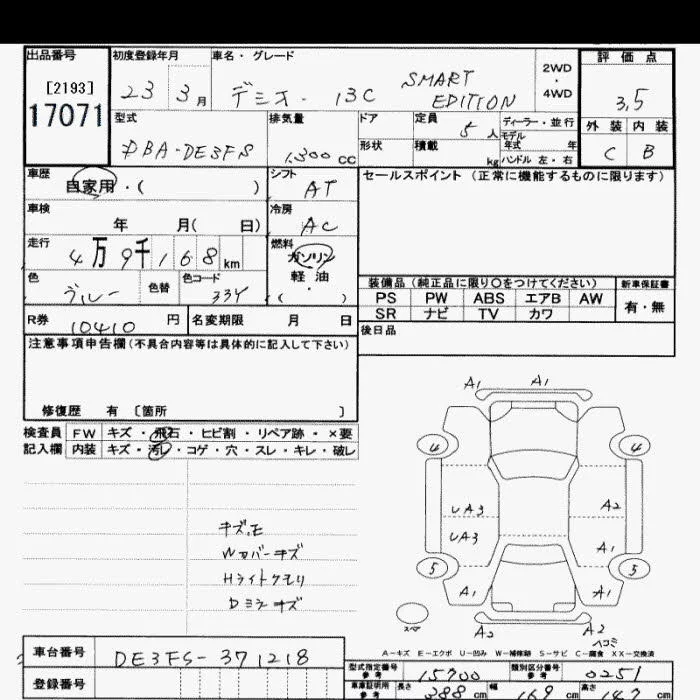 出品番号
[2193]
17071
初度登録年月
23 3月
車名・グレード
デミオ・ 13C SMART EDITION
2WD
・
4WD
評価点
3.5
外装 内装
C B
型式
DBA-DE3FS
排気量
1,300 cc
ドア
定員
5人
ディーラー・並行
モデル
年式 年
形状
積載
kg
ハンドル 左・右
車歴
自家用・( )
シフト
AT
セールスポイント(正常に機能するものに限ります)
車検
年 月( 日)
冷房
AC
走行
4万9千168km
燃料
ガソリン
軽油
( ・ )
色
ブルー
色替
色コード
33Y
装備品(純正品に限り○をつけてください)
新車保証書
PS PW ABS エアB AW
SR ナビ TV カワ
有・無
R券 10410 円
名変期限 月 日
後日品
注意事項申告欄(不具合内容等は具体的に記入して下さい)
修復歴 有 〔箇所 〕
検査員
記入欄
FW キズ・飛石・ヒビ割・リペア跡・×要
内装 キズ・汚レ・コゲ・穴・スレ・キレ・破レ
キズ、モ
Wカバーキズ
Hライトクモリ
Dミラーキズ
A1 A1
4 4
UA3 A2
UA3 A1
5 5
A1 A1
スペア
A2 A2
ヘコミ
A-キズ E-エクボ U-凹み W-補修跡 S-サビ C-腐食 XX-交換済
車台番号
DE3FS-371218
登録番号
型式指定番号
参考
15700
類別区分番号
参考
0251
車庫証明用
参考
長さ
388 cm
幅
169 cm
高さ
147 cm